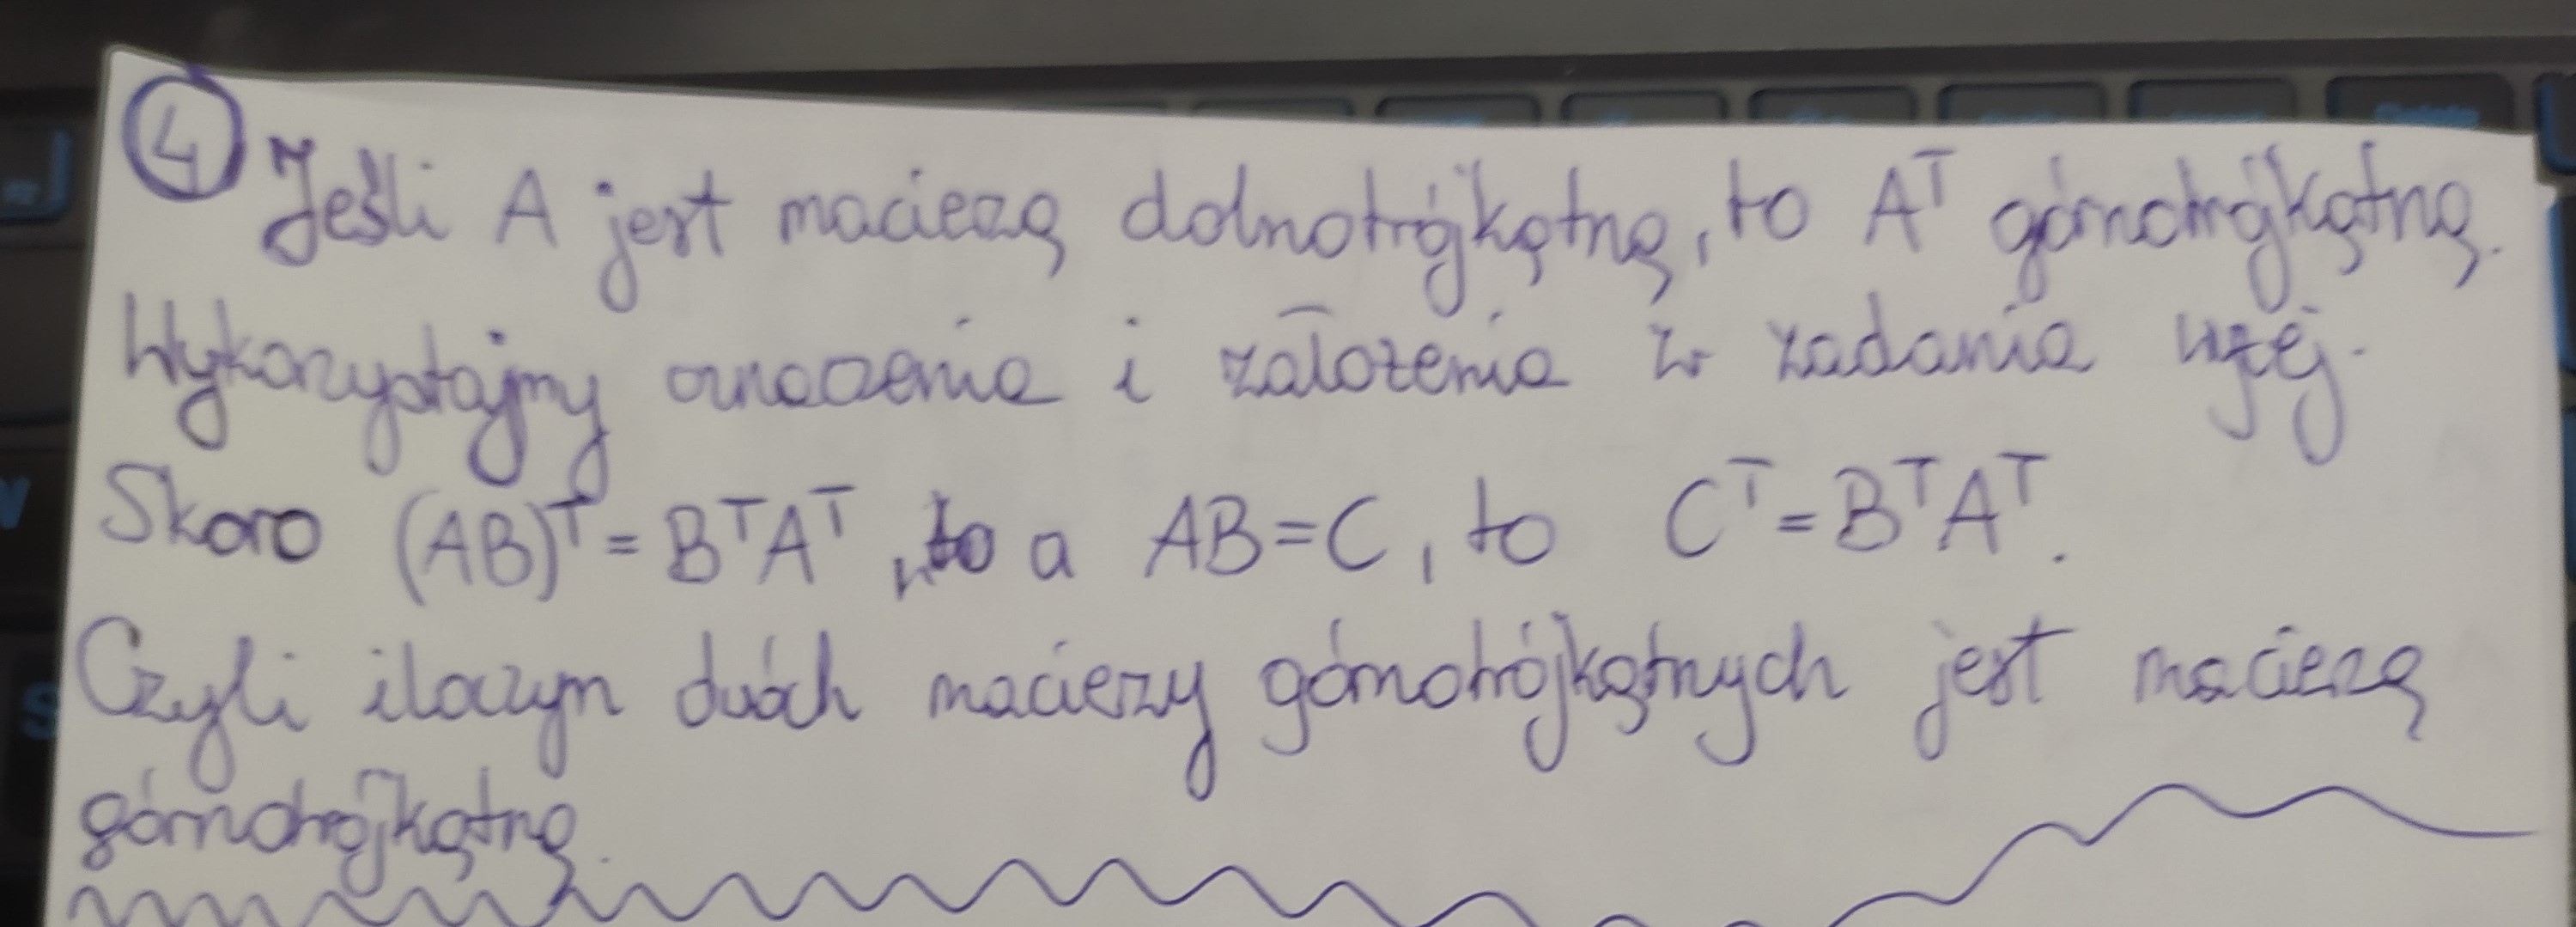 ④ Jeśli A jest macierzą dolnotrójkątną, to Aᵀ górnotrójkątną.
Wykorzystajmy oznaczenia i założenia z zadania wyżej.
Skoro (AB)ᵀ = BᵀAᵀ, a AB = C, to Cᵀ = BᵀAᵀ.
Czyli iloczyn dwóch macierzy górnotrójkątnych jest macierzą
górnotrójkątną.